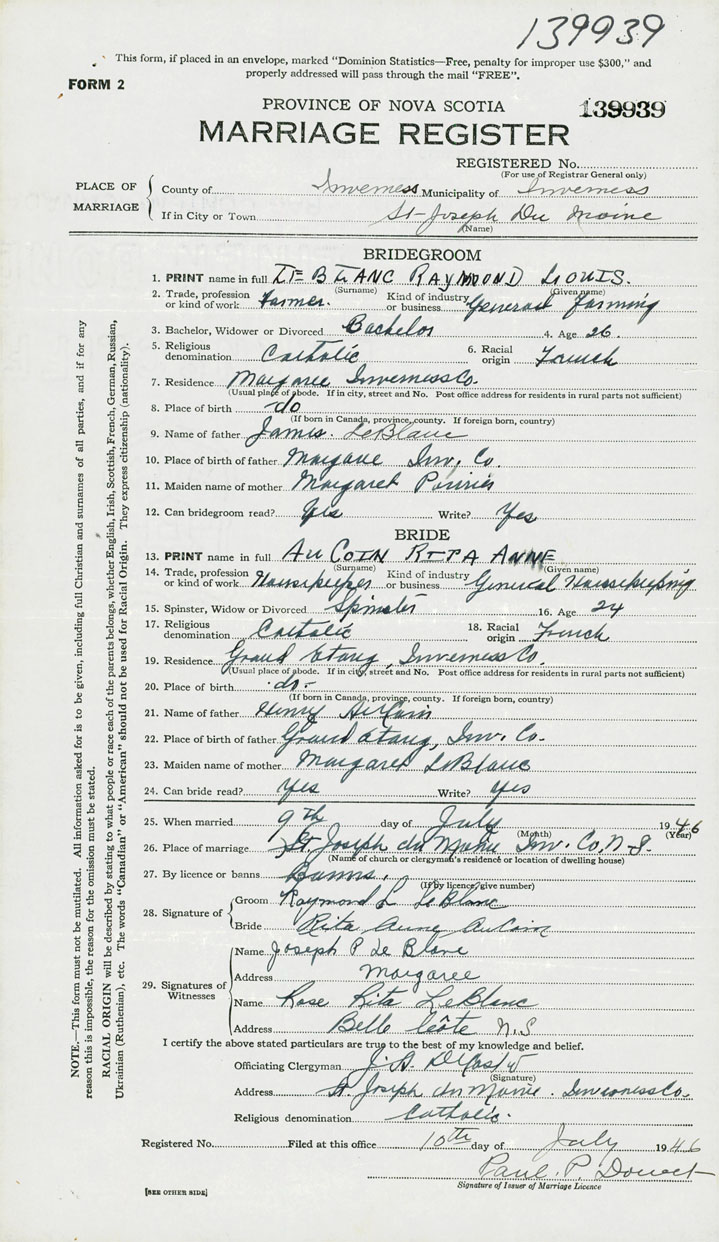 139939
This form, if placed in an envelope, marked "Dominion Statistics—Free, penalty for improper use $300," and
properly addressed will pass through the mail "FREE".
FORM 2
PROVINCE OF NOVA SCOTIA 139939
MARRIAGE REGISTER
REGISTERED No.
(For use of Registrar General only)
PLACE OF MARRIAGE
County of Inverness Municipality of Inverness
If in City or Town St-Joseph Du Moine
(Name)
BRIDEGROOM
1. PRINT name in full LE BLANC RAYMOND LOUIS.
(Surname) (Given name)
2. Trade, profession or kind of work Farmer. Kind of industry or business General Farming
3. Bachelor, Widower or Divorced Bachelor 4. Age 26.
5. Religious denomination Catholic 6. Racial origin French
7. Residence Margaree Inverness Co.
(Usual place of abode. If in city, street and No. Post office address for residents in rural parts not sufficient)
8. Place of birth do
(If born in Canada, province, county. If foreign born, country)
9. Name of father James. LeBlanc
10. Place of birth of father Margaree Inv. Co.
11. Maiden name of mother Margaret Poirier
12. Can bridegroom read? Yes Write? Yes
BRIDE
13. PRINT name in full AU COIN RITA ANNE
(Surname) (Given name)
14. Trade, profession or kind of work Housekeeper Kind of industry or business General Housekeeping
15. Spinster, Widow or Divorced Spinster 16. Age 24
17. Religious denomination Catholic 18. Racial origin French
19. Residence Grand Etang, Inverness Co.
(Usual place of abode. If in city, street and No. Post office address for residents in rural parts not sufficient)
20. Place of birth do-
(If born in Canada, province, county. If foreign born, country)
21. Name of father Henry AuCoin
22. Place of birth of father Grand Etang, Inv. Co.
23. Maiden name of mother Margaret LeBlanc
24. Can bride read? Yes Write? Yes
25. When married 9th day of July 1946
(Month) (Year)
26. Place of marriage St. Joseph du Moine Inv. Co, N-S.
(Name of church or clergyman's residence or location of dwelling house)
27. By licence or banns Banns.
(If by licence, give number)
28. Signature of Groom Raymond L LeBlanc
Bride Rita Anne AuCoin
29. Signatures of Witnesses
Name Joseph P Le Blanc
Address Margaree
Name Rose Rita LeBlanc
Address Belle Côte N.S
I certify the above stated particulars are true to the best of my knowledge and belief.
Officiating Clergyman J. A. DeCoste
(Signature)
Address St Joseph du Moine. Inverness Co.
Religious denomination Catholic.
Registered No. Filed at this office 10th day of July 1946
Paul. P. Doucet
Signature of Issuer of Marriage Licence
[SEE OTHER SIDE]
NOTE.—This form must not be mutilated. All information asked for is to be given, including full Christian and surnames of all parties, and if for any
reason this is impossible, the reason for the omission must be stated.
RACIAL ORIGIN will be described by stating to what people or race each of the parents belongs, whether English, Irish, Scottish, French, German, Russian,
Ukrainian (Ruthenian), etc. The words "Canadian" or "American" should not be used for Racial Origin. They express citizenship (nationality).